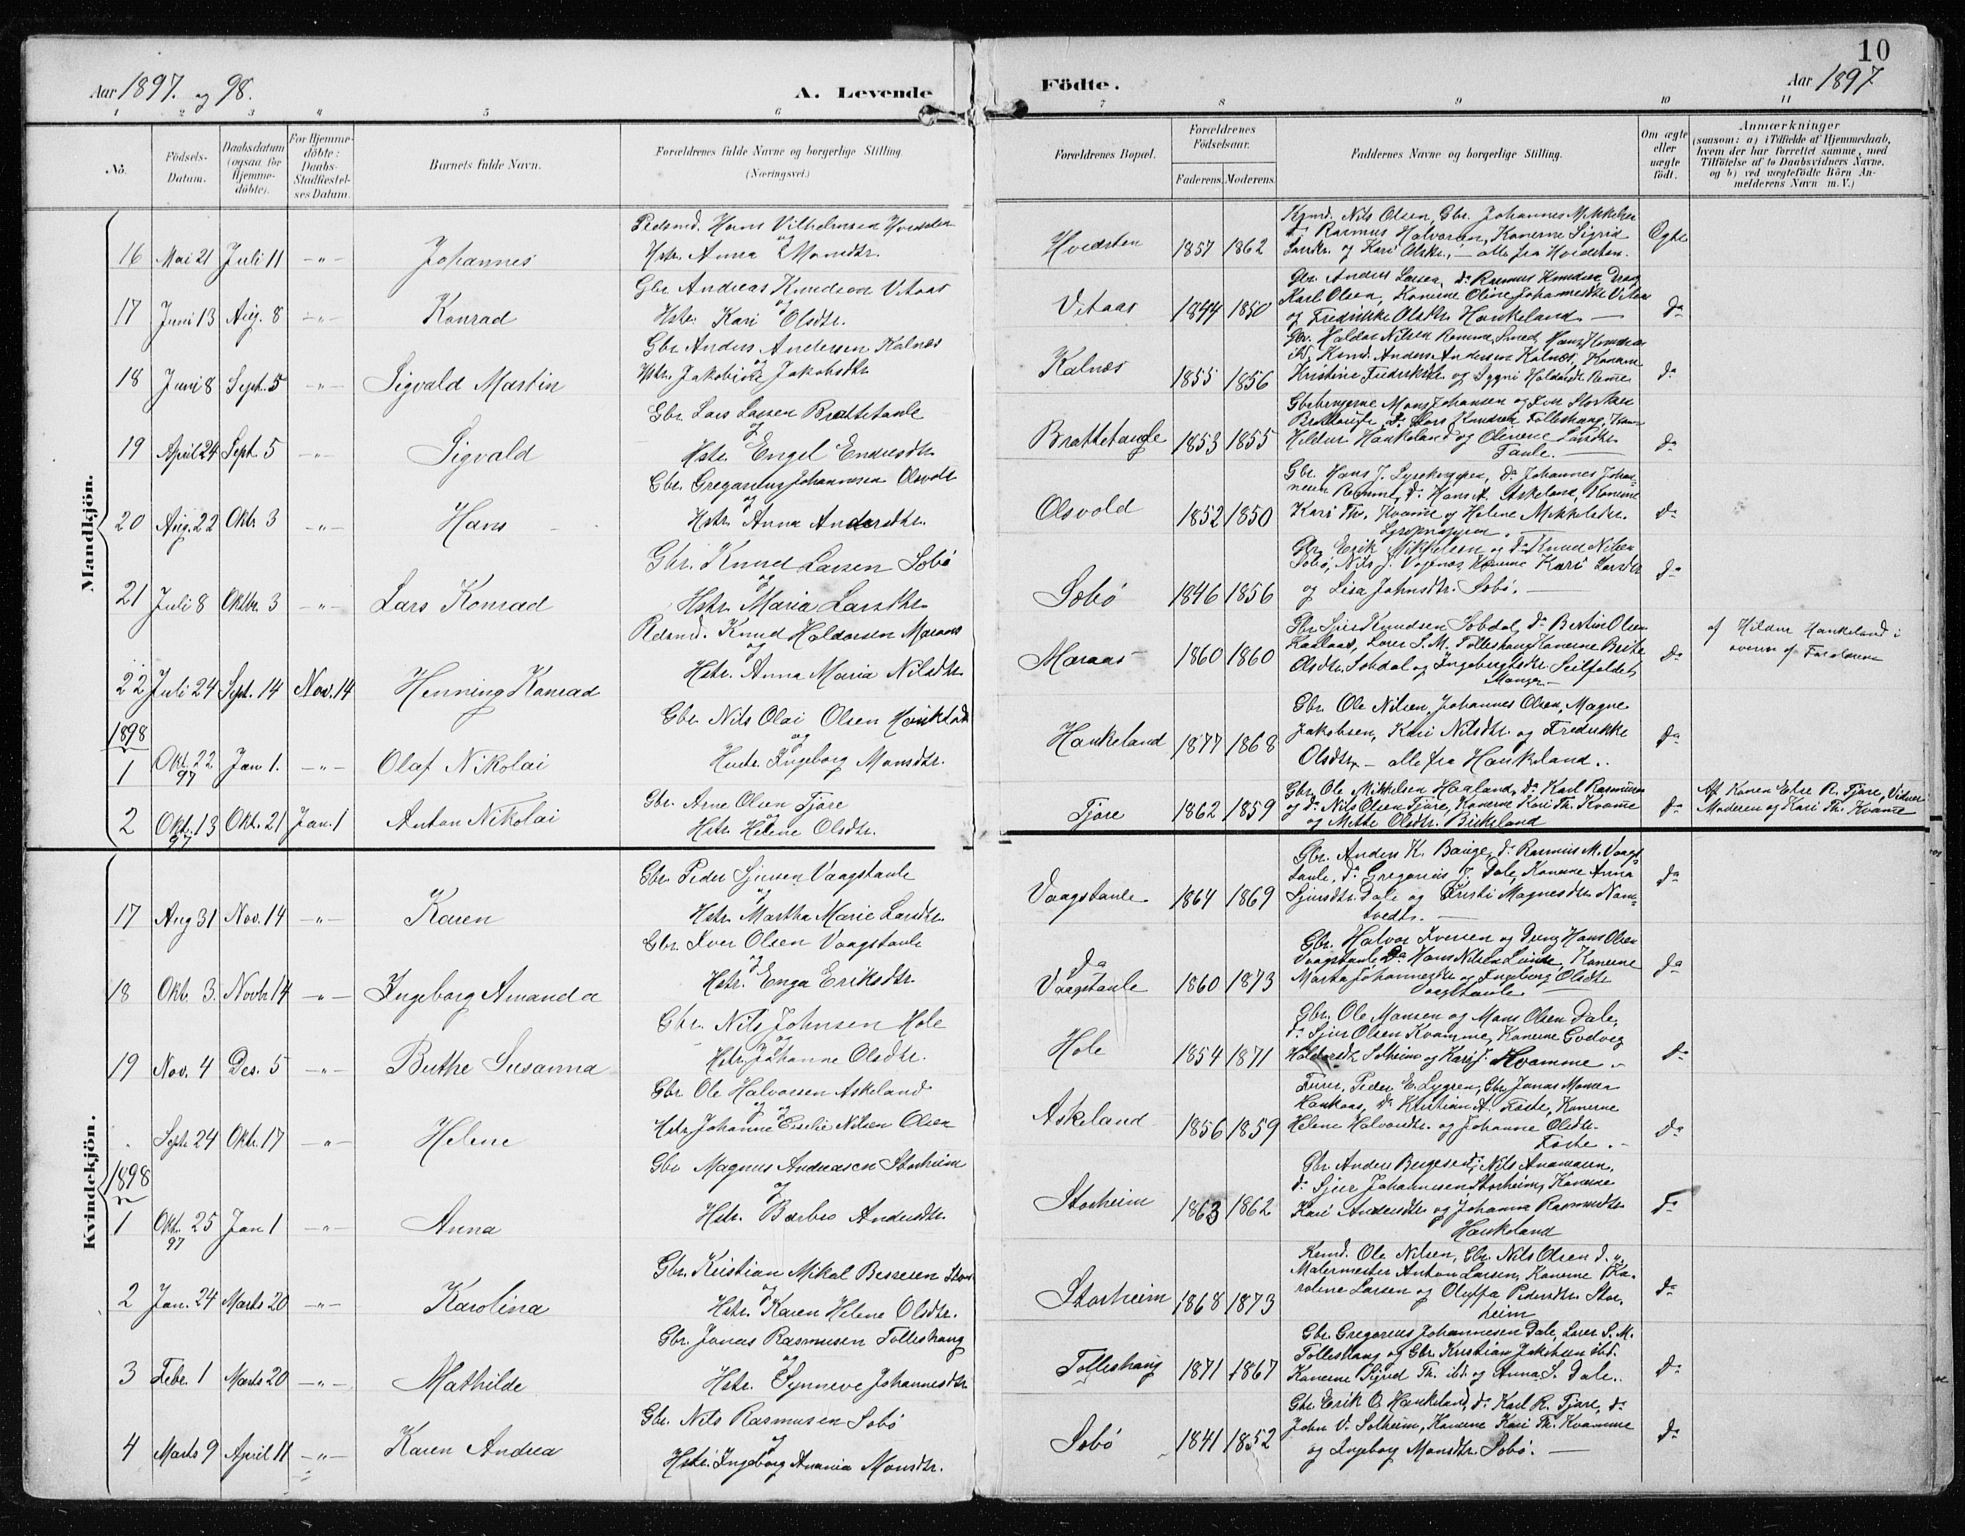 10
Aar 1897. og 98.
A. Levende
Födte.
Aar 1897
1 2 3 4 5 6 7 8 9 10 11
No.
Födsels-Datum.
Daabsdatum (ogsaa for Hjemme-döbte).
For Hjemme-döbte: Daabs-Stadfæstel-ses Datum.
Barnets fulde Navn.
Forældrenes fulde Navne og borgerlige Stilling.
(Næringsvei.)
Forældrenes Bopæl.
Forældrenes Födselsaar.
Faderens. Moderens.
Faddernes Navne og borgerlige Stilling.
Om ægte eller uægte födt.
Anmærkninger
(saasom: a) i Tilfælde af Hjemmedaab,
hvem der har forrettet samme, med
Tilföielse af to Daabsvidners Navne,
og b) ved uægtefödte Börn An-
melderens Navn m. V.)
Mandkjön.
16 Mai 21 Juli 11 -"- Johannes
Hans Vilhelmsen Hvedsten
og
Hstr. Anna Monsdtr.
Hvedsten 1857 1862
Nils Olsen, Gbr. Johannes Mikkelsen
Rasmus Halvorsen, Konerne Sigrid
Larsdr. og Kari Olsdr. — alle fra Hvedsten.
Ægte
17 Juni 13 Aug. 8 -"- Konrad
Gbr Andreas Knudson Vitaas
og
Hstr. Kari Olsdtr.
Vitaas 1844 1850
Gbr. Anders Larsen, da Rasmus Knudsen, Dreng
Karl Olsen, Konerne Oline Johannesdtr Vitaas
og Fredrikke Olsdtr. Haukeland —
da
18 Juni 8 Sept. 5 -"- Sigvald Martin
Gbr Anders Andersen Kalnæs
og
Hstr. Jakobine Jakobsdtr
Kalnæs 1855 1856
Gbr. Haldor Nilsen Romme, Smed Hans Knudsen
ibd, Anders Andersen Kalnæs, Konerne
Kristine Fredriksdtr og Sygni Haldorsdtr Romme
da
19 April 24 Sept. 5 -"- Sigvald
Gbr Lars Larsen Brattetaule
og
Hstr. Engel Endresdtr
Brattetaule 1853 1855
Gbrbrugerne Mons Johansen og
Brattetaule, da Lars Knudsen Tolleshaug, Kone
Hildur Haukeland og Olivine Larsdtr
Taule. —
da
20 Aug. 22 Oktr 3 -"- Hans
Gbr. Gregorius Johannesen Olsvold
og
Hstr. Anna Andersdtr.
Olsvold 1852 1850
Gbr. Hans J. da Johannes Johan-
nesen Romme, da Hans A. Askeland, Konerne
Kari Th. Kvamme og Helene Mikkelsdtr.
da
21 Juli 8 Oktbr. 3 -"- Lars Konrad
Gbr. Knud Larsen Søbø
og
Hstr. Maria Larsdtr
Søbø 1846 1856
Gbr Erik Mikkelsen og da Knud Nilsen
Søbø, Nils J. Konerne Kari Larsdtr
og Lisa Johnsdtr. Søbø. —
da
22 Juli 24 Sept. 14 Nov. 14 Henning Konrad
Knud Haldorsen Maraas
og
Hstr. Anna Maria Nilsdtr.
Maraas 1860 1860
Gbr Sjur Knudsen Søbdal, da Bertin Olsen
S. M. Tolleshaug, Konerne Brita
Olsdtr. Søbdal og Ingeborg
Manger —
da
af Hildur Haukeland i
1898
1 Okt. 22 97 Jan 1. -"- Olaf Nikolai
Gbr. Nils Olai Olsen Haukland
og
Hustr. Ingeborg Monsdtr.
Haukeland 1877 1868
Gbr. Ole Nilsen, Johannes Olsen, Magne
Jakobsen, Kari Nilsdtr og Fredrikke
Olsdtr — alle fra Haukeland.
da
2 Okt. 13 97 Okt. 21 Jan. 1 Anton Nikolai
Gbr. Arne Olsen Fjøre
og
Hstr. Helene Olsdtr.
Fjøre 1862 1859
Gbr. Ole Mikkelsen Haaland, da Karl Rasmusen
og da Nils Olsen Fjøre, Konerne Kari Th. Kvamme
og Mette Olsdtr. Birkeland
da
Af Konen Eli R. Fjøre, Vidner
Moderen og Kari Th. Kvamme
Kvindekjön.
17 Aug 31 Nov. 14 -"- Karen
Gbr. Peder Sjursen Vaagstaule
og
Hstr. Martha Marie Larsdtr.
Vaagstaule 1864 1869
Gbr. Anders K. Bauge, da Rasmus M. Vaags-
taule, da Gregorius J. Dale, Konerne Anna
Sjursdtr Dale og Kristi Magnesdtr Nam-
tvedt. —
da
18 Oktr 3. Novbr 14 -"- Ingeborg Amanda
Gbr Iver Olsen Vaagstaule
og
Hstr. Enga Eriksdtr.
da
Vaagstaule 1860 1873
Gbr. Halvor Iversen og Dreng Hans Olsen
Vaagstaule, da Hans Nilsen Konerne
Marta Johannesdtr og Ingeborg Olsdtr
Vaagstaule
da
19 Nov. 4 Des. 5 -"- Berthe Susanna
Gbr. Nils Johnsen Hole
og
Hstr. Johanne Olsdtr.
Hole 1854 1871
Gbr. Ole Monsen og Mons Olsen Dale,
da Sjur Olsen Kvamme, Konerne Gudveig
Haldorsdtr Solheim og Kari J. Kvamme.
da
Septr 24 Oktr. 17 -"- Helene
Gbr Ole Halvorsen Askeland
og
Hstr Johanne Nilsen Olsen
Askeland 1856 1859
Peder E. Lygren, Gbr Jonas Monsen
Haukaas, da Kristian A. Foste, Konerne
Helene Halvorsdtr. og Johanne Olsdtr
Foste. —
da
1898
1 Okt. 25 97 Jan 1 -"- Anna
Gbr Magnus Andreasen Storheim
og
Hstr. Barbro Andersdtr.
Storheim 1863 1862
Gbr Anders Børgesen, da Nils
da Sjur Johannesen Storheim, Konerne
Kari Andersdtr og Johanna Rasmusdtr
Haukeland
da
2 Jan. 24 Marts 20 -"- Karolina
Gbr. Kristian Mikal Storh.
og
Hstr. Karen Helene Olsdtr.
Storheim 1868 1873
Ole Nilsen, Gbr. Nils Olsen da og
Malermester Anton Larsen, Konerne Ka-
roline Larsen og Oluffa Pedersdtr. Stor-
heim
da
3 Febr. 1 Marts 20 -"- Mathilde
Gbr. Jonas Rasmusen Tolleshaug
og
Hstr. Synneve Johannesdtr.
Tolleshaug 1871 1867
Gbr. Gregorius Johannesen Dale, S. M.
Tolleshaug og Gbr Kristian Jakobsen ibd.
Konerne Sigrid Th. ibd. og Anna S. Dale.
da
4 Marts 9 April 11 -"- Karen Andrea
Gbr. Nils Rasmusen Søbø
og
Hstr. Ingeborg Anania Monsdtr.
Søbø 1841 1852
Gbr Erik O. Haukeland, da Karl R. Fjøre, da
John V. Solheim, Konerne Kari Th. Kvamme
og Ingeborg Monsdtr. Søbø. —
da